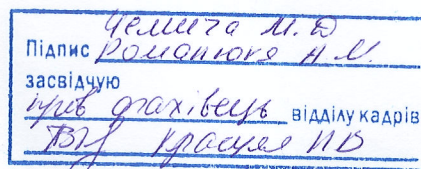 Чемича М. Д
Підпис Романюка А. М.
засвідчую
пров фахівець відділу кадрів
Красуля ПВ